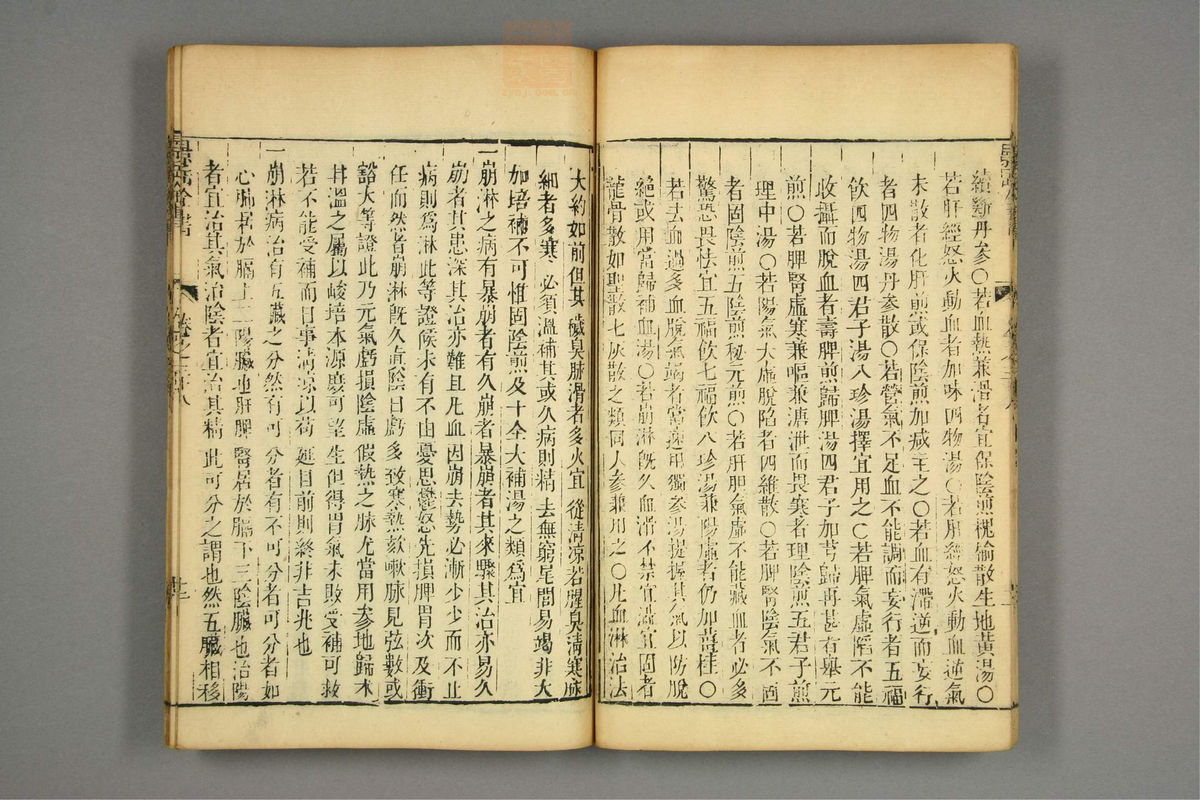 續斷丹參○若血熱兼滑者宜保陰煎槐榆散生地黃湯○
若肝經怒火動血者加味四物湯○若肝經怒火動血逆氣
未散者化肝煎或保陰煎加減主之○若血有滯逆而妄行
者四物湯丹參散○若營氣不足血不能調而妄行者五福
飲四物湯四君子湯八珍湯擇宜用之○若脾氣虛陷不能
收攝而脫血者壽脾煎歸脾湯四君子加芎歸再甚者舉元
煎○若脾腎虛寒兼嘔兼溏泄而畏寒者理陰煎五君子煎
理中湯○若陽氣大虛脫陷者四維散○若脾腎陰氣不固
者固陰煎五陰煎秘元煎○若肝膽氣虛不能藏血者必多
驚恐畏怯宜五福飲七福飲八珍湯兼陽虛者仍加薑桂○
若去血過多血脫氣竭者當速用獨參湯提握其氣以防脫
絕或用當歸補血湯○若崩淋既久血滑不禁宜濇宜固者
龍骨散如聖散七灰散之類同人參兼用之○凡血淋治法
大約如前但其穢臭脉滑者多火宜從清涼若腥臭清寒脉
細者多寒必須溫補其或久病則精去無窮尾閭易竭非大
加培補不可惟固陰煎及十全大補湯之類爲宜
一崩淋之病有暴崩者有久崩者暴崩者其來驟其治亦易久
崩者其患深其治亦難且凡血因崩去勢必漸少少而不止
病則爲淋此等證候未有不由憂思鬱怒先損脾胃次及衝
任而然者崩淋既久眞陰日虧多致寒熱欬嗽脉見弦數或
豁大等證此乃元氣虧損陰虛假熱之脉尤當用參地歸术
甘溫之屬以峻培本源庶可望生但得胃氣未敗受補可救
若不能受補而日事清涼以苟延目前則終非吉兆也
一崩淋病治有五藏之分然有可分者有不可分者可分者如
心肺居於膈上二陽臟也肝脾腎居於膈下三陰臟也治陽
者宜治其氣治陰者宜治其精此可分之謂也然五臟相移